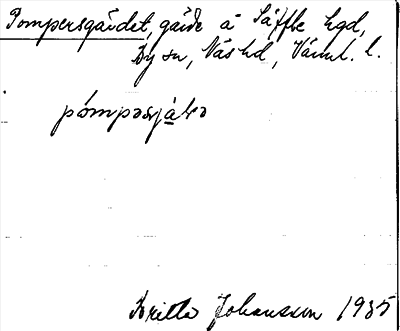 Pompersgärdet, gärde å Säffle hgd,
By sn, Näs hd, Värml. l.
pómpəsjäɫə
Britta Johansson 1935